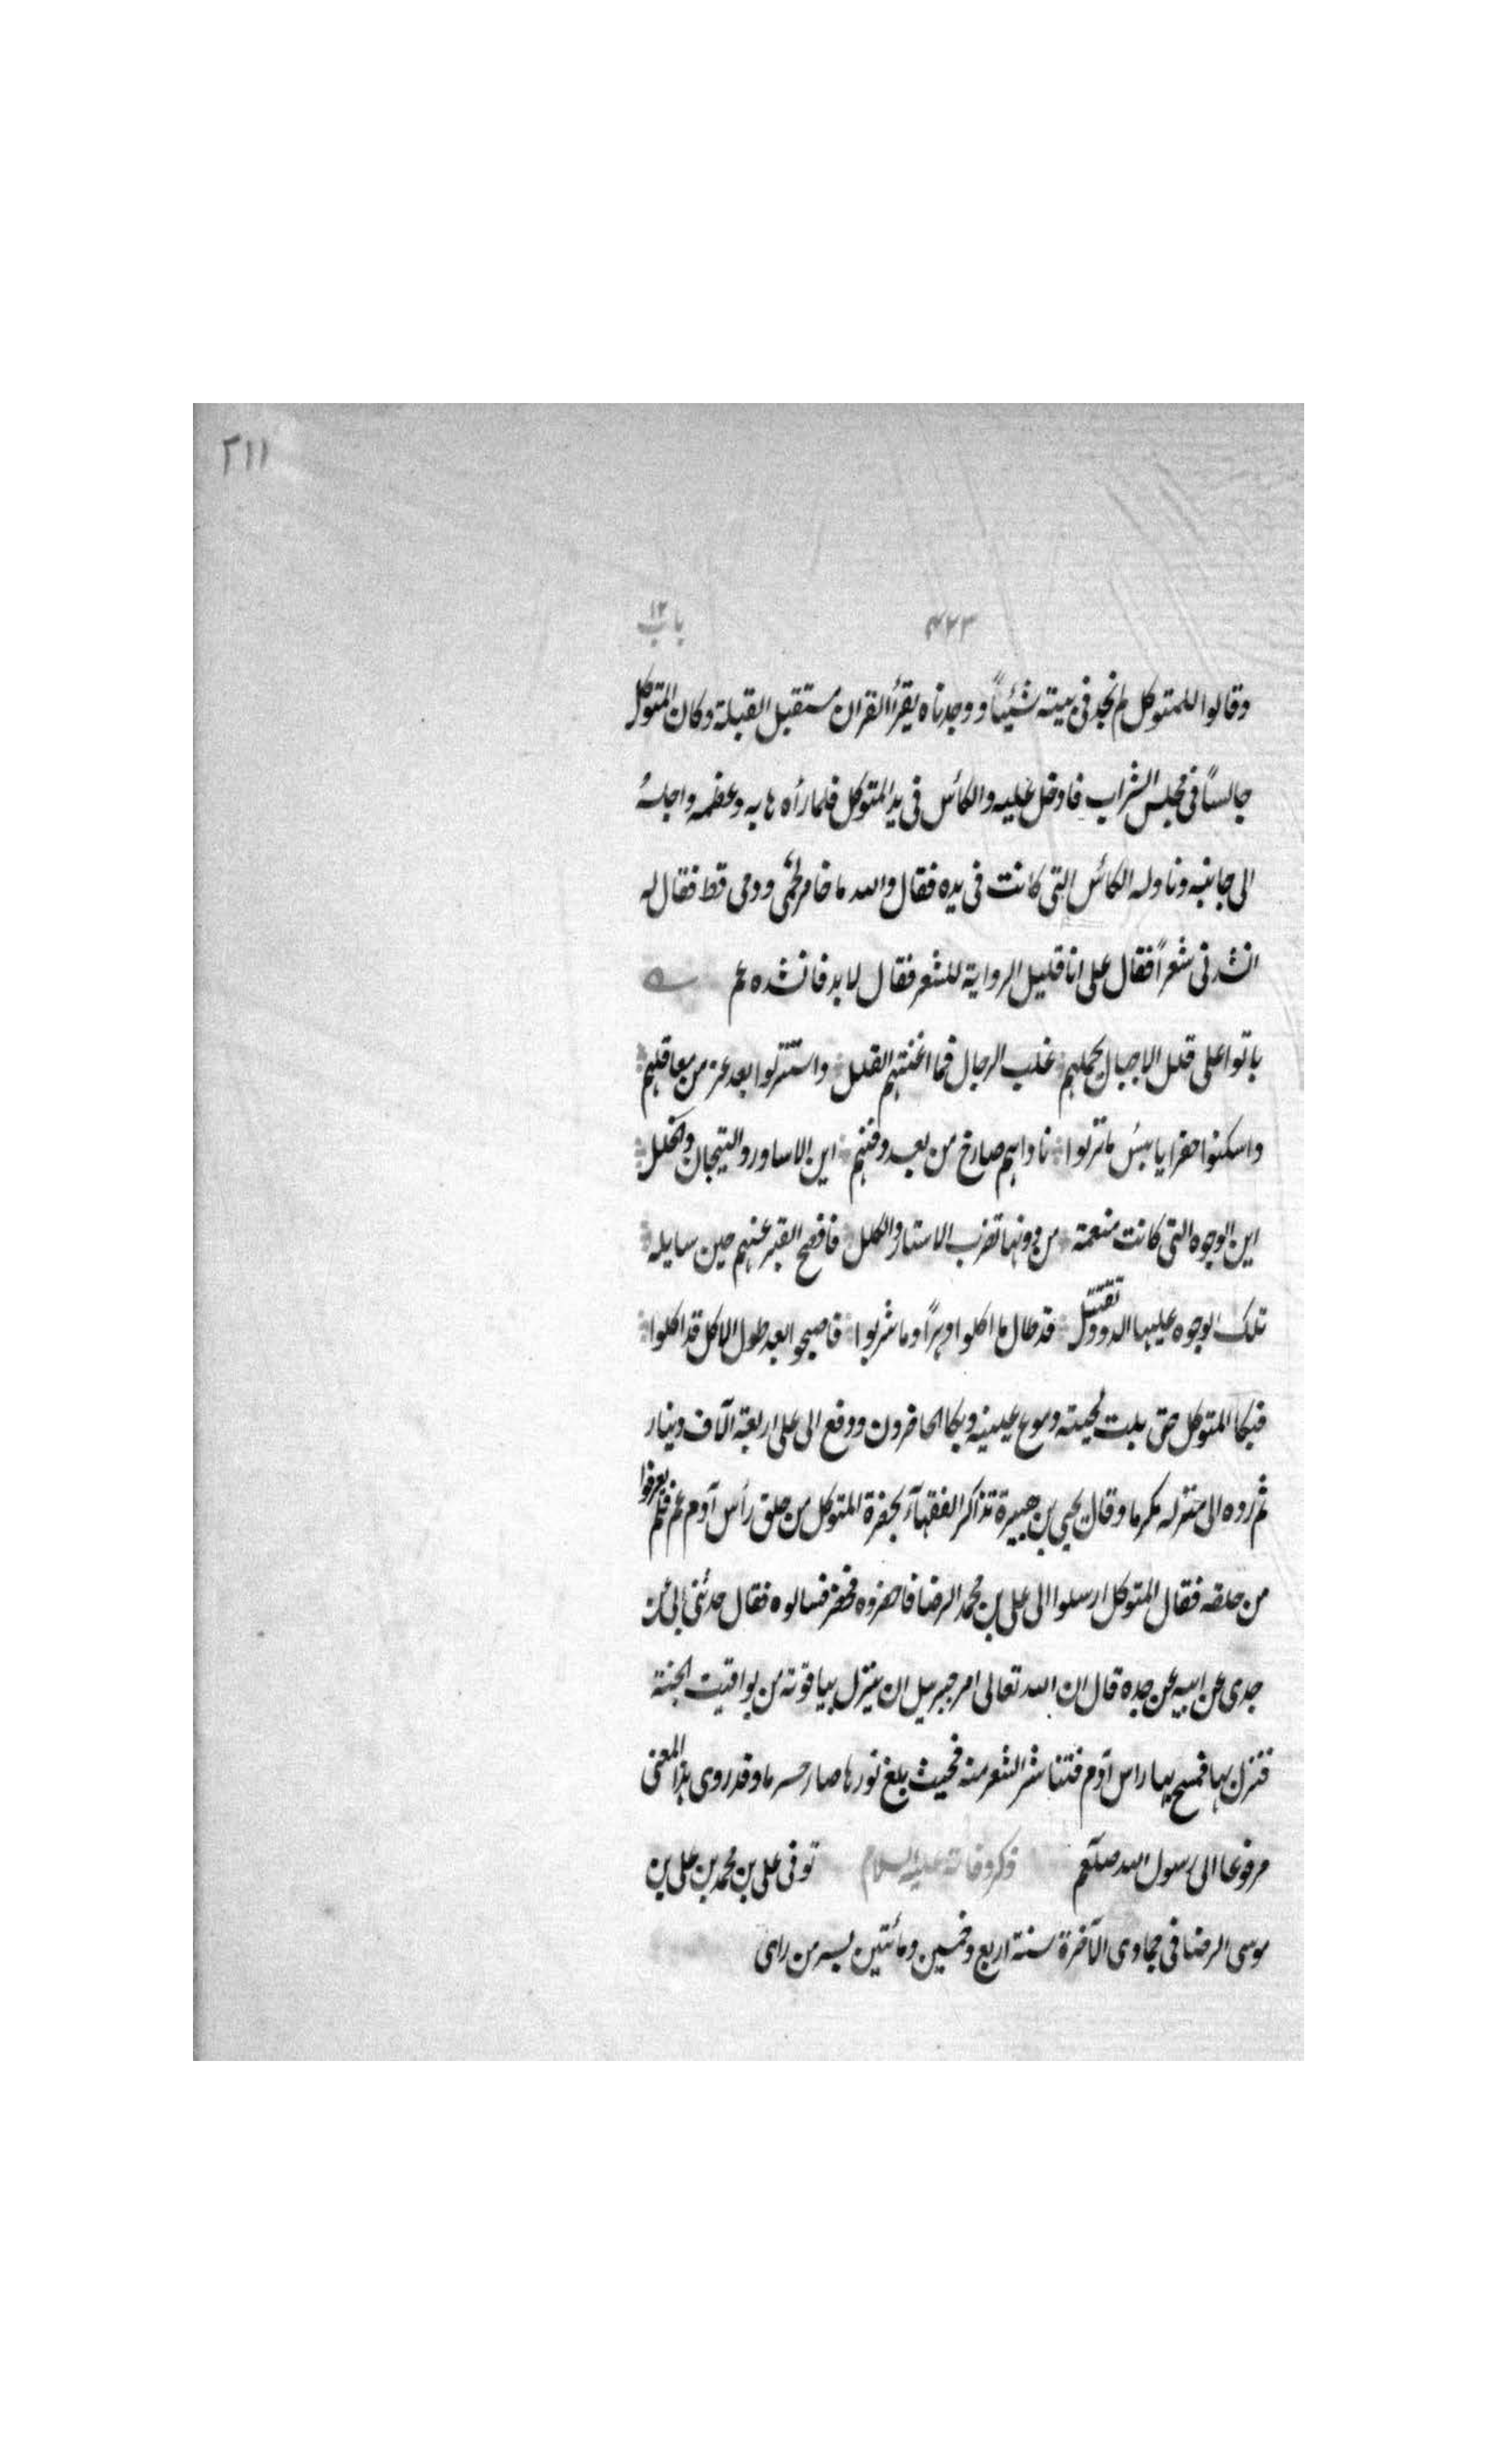 ٢١١
٤٢٣ باب ١٢
وقالوا للمتوكل لم نجد فى بيته شيئاً ووجدناه يقرأ القران مستقبل القبلة وكان المتوكل
جالساً فى مجلس الشراب فادخل عليه والكأس فى يد المتوكل فلما رأه هابه وعظمه واجلسه
الى جانبه وناوله الكأس التى كانت فى يده فقال والله ما خامر لحمى ودمى قط فقال له
انشدنى شعراً فقال على انا قليل الرواية للشعر فقال لا بد فانشده عم
باتوا على قلل الاجبال يحملهم غلب الرجال فما اغنتهم القلل واستنزلوا بعد عز من معاقلهم
واسكنوا حفرا يا بئس ما نزلوا ناداهم صارخ من بعد دفنهم اين الاساور والتيجان والحلل
اين الوجوه التى كانت منعمة من دونها تضرب الاستار والكلل فافصح القبر عنهم حين سايله
تلك الوجوه عليها الدود تقتتل قد طال ما اكلوا دهراً وما شربوا فاصبحوا بعد طول الاكل قد اكلوا
فبكا المتوكل حتى بلت لحيته دموع عينيه وبكا الحاضرون ودفع الى على اربعة آلاف دينار
ثم رده الى منزله مكرما وقال يحيى بن هبيرة تذاكر الفقهآء بحضرة المتوكل من حلق رأس آدم عم فلم يعرفوا
من حلقه فقال المتوكل ارسلوا الى على بن محمد الرضا فاحضروه فحضر فسالوه فقال حدثنى ابى عن
جدى عن ابيه عن جده قال ان الله تعالى امر جبرييل ان ينزل بياقوتة من يواقيت الجنة
فنزل بها فمسح بها راس آدم فتناثر الشعر منه فحيث بلغ نورها صار حرما وقد روى هذا المعنى
مرفوعا الى رسول الله صلعم ذكر وفاته عليه السلام توفى على بن محمد بن على بن
موسى الرضا فى جمادى الآخرة سنة اربع وخمسين ومائتين بسر من راى